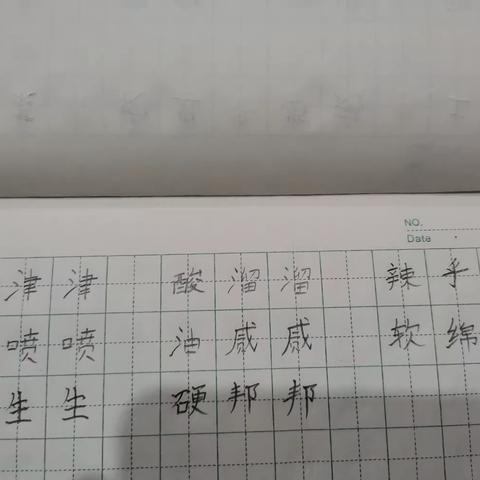 NO.
Date
津津 酸溜溜 辣乎
喷喷 油咸咸 软绵
生生 硬邦邦